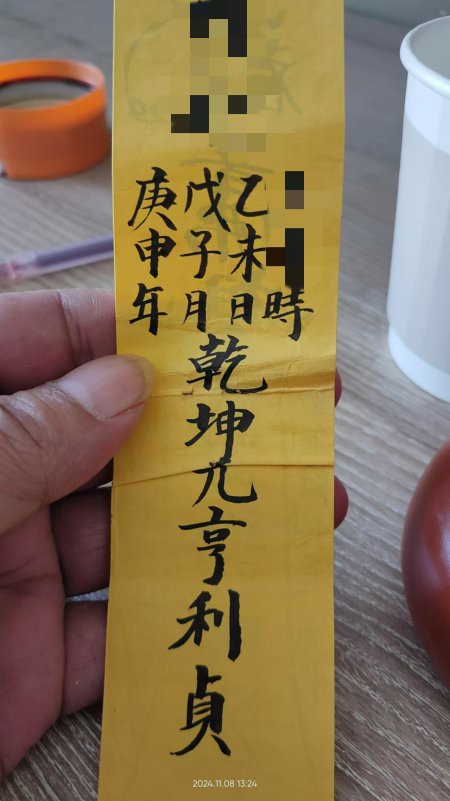 庚申年
戊子月
乙未日
時
乾坤元亨利貞
2024.11.08 13:24